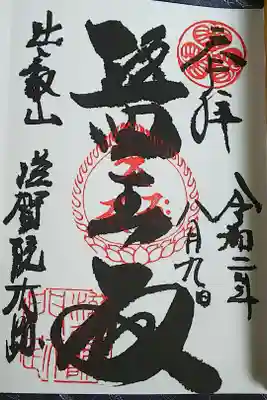 奉拝
令和二年
八月九日
醫王殿
比叡山
滋賀院門跡